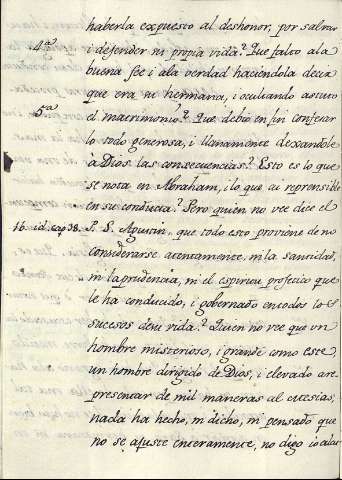 haberla expuesto al deshonor, por salvar
4.ª i defender su propia vida? Que faltò a la
buena fee i a la verdad haciendola decir
que era su hermana, i ocultando astuto
5.ª el matrimonio? Que debió en fin confesar
lo todo generosa, i llanamente dexandole
à Dios las consecuencias? Esto es lo que
se nota en Abraham, i lo que ai reprensible
en su conducta? Pero quien no vee dice el
16. id. cap. 38. P. S. Agustin, que todo esto proviene de no
considerarse atentamente, ni la santidad,
ni la prudencia, ni el espiritu profetico que
le ha conducido, i gobernado en todos los
sucesos de su vida? Quien no vee que un
hombre misterioso, i grande como este,
un hombre dirigido de Dios, i elevado a re-
presentar de mil maneras al Mesias,
nada ha hecho, ni dicho, ni pensado que
no se ajuste enteramente, no digo io a las